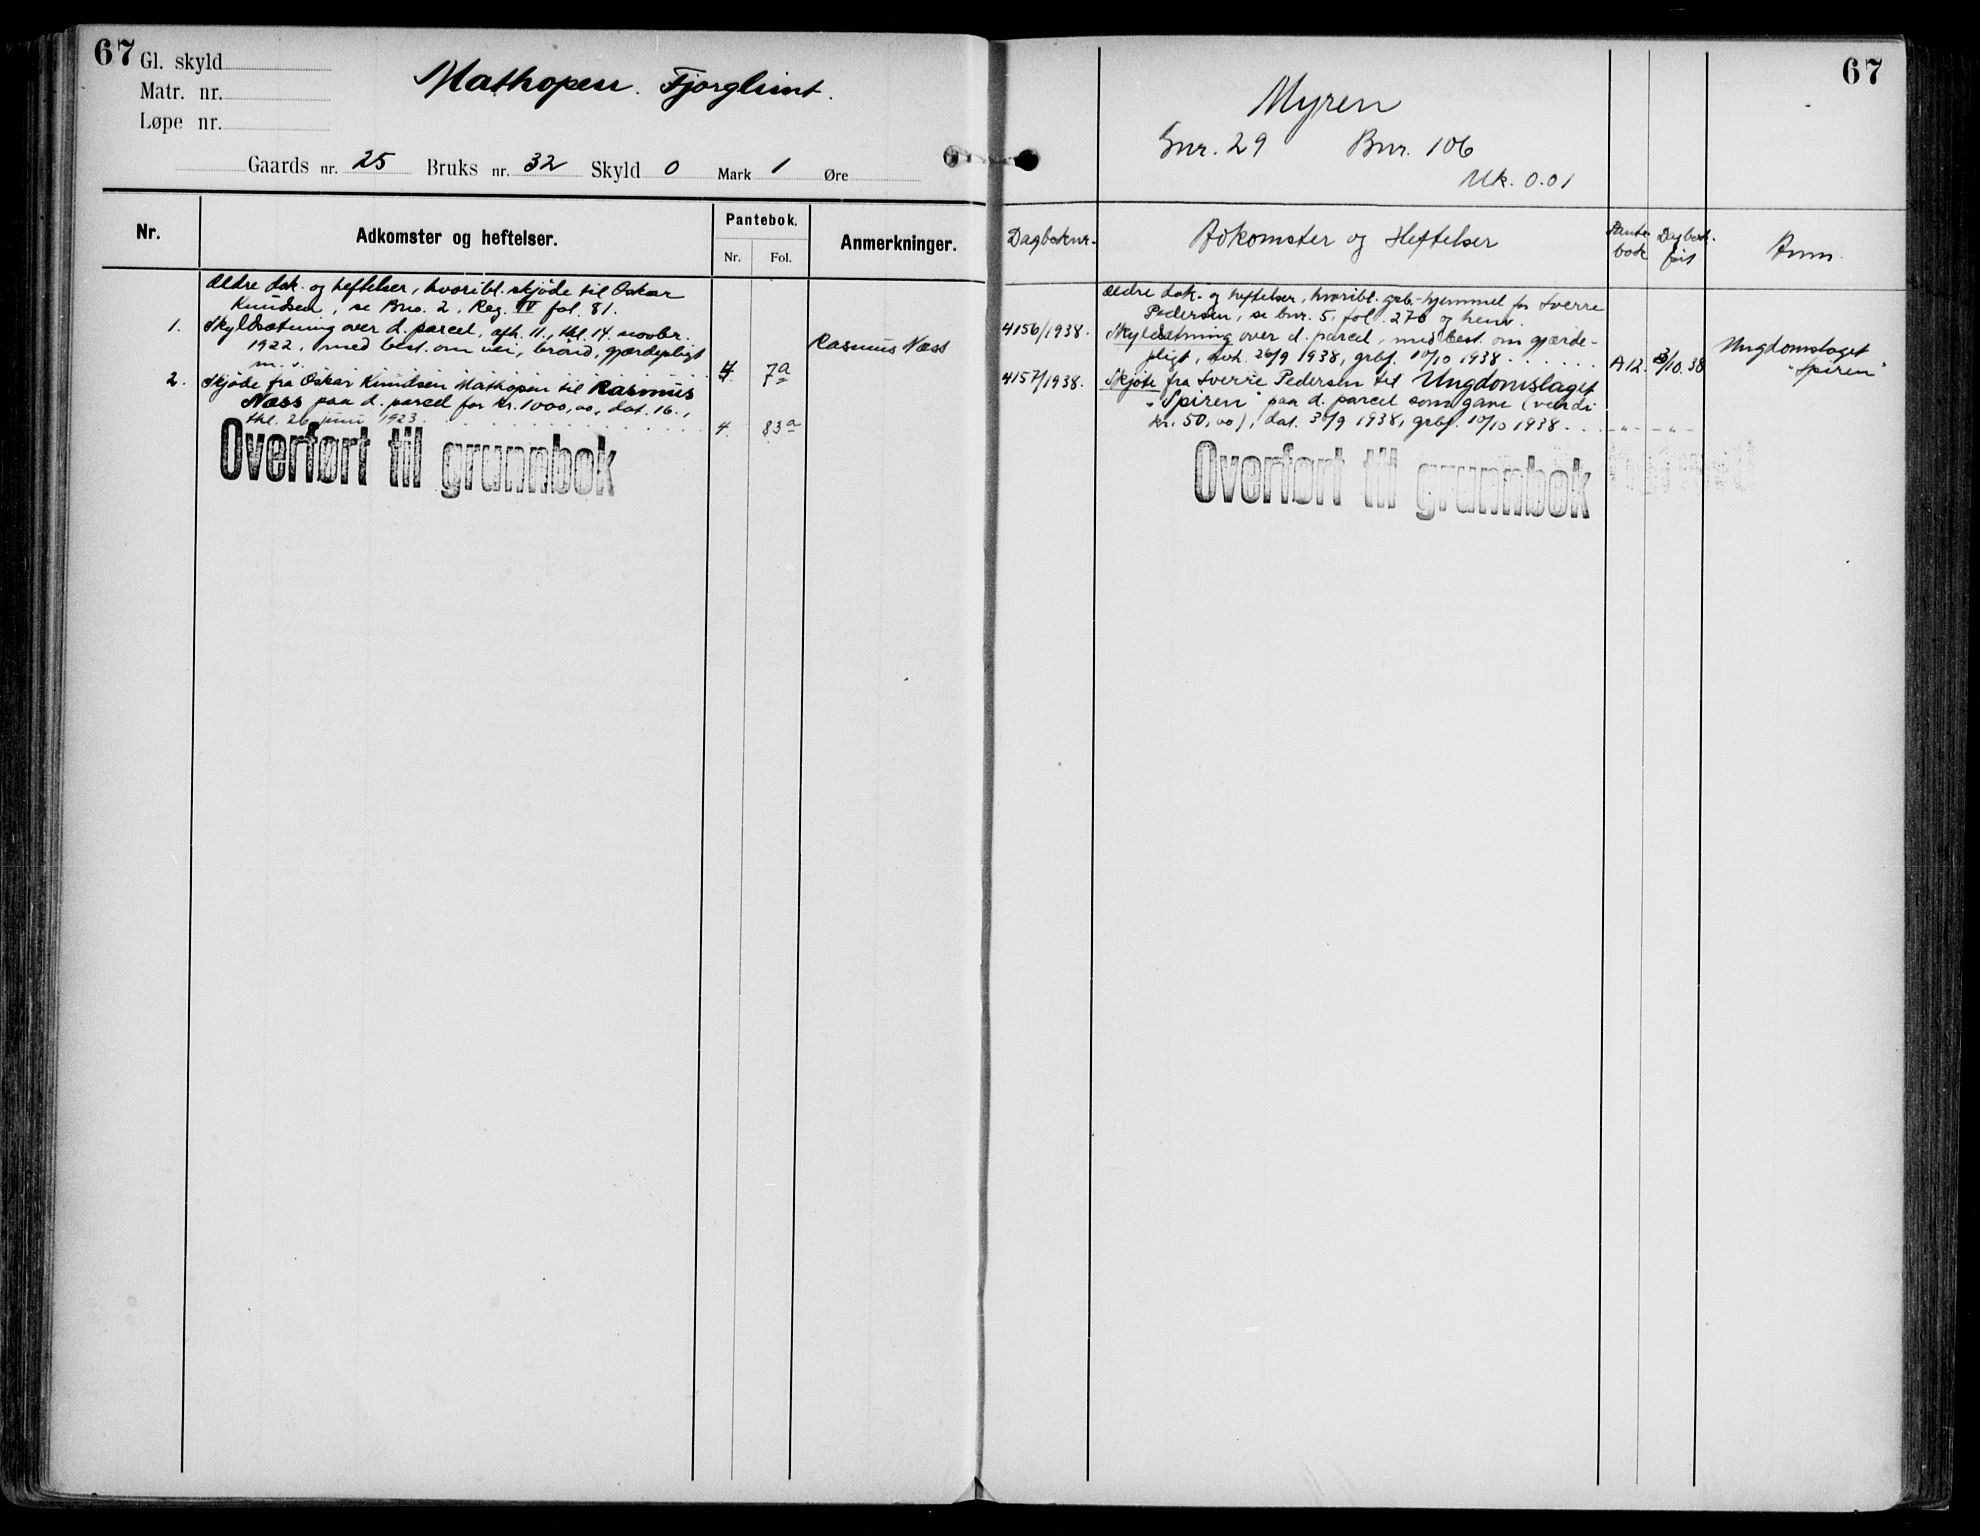 67
Gl. skyld
Matr. nr.
Løpe nr.
Mathopen. Fjorglimt.
Gaards nr. 25 Bruks nr. 32 Skyld 0 Mark 1 Øre
Nr.
Adkomster og heftelser.
Pantebok.
Nr. Fol.
Anmerkninger.
Ældre dok. og heftelser, hvoribl. skjøde til Oskar
Knudsen, se Bno. 2, Reg. IV fol. 81.
1. Skyldsætning over d. parcel, afh. 11., thl. 14. novbr.
1922, med best. om vei, brønd, gjærdepligt
m. v. 4. 7a
Rasmus Næss
2. Skjøde fra Oskar Knudsen Mathopen til Rasmus
Næss paa d. parcel for kr. 1000,00, dat. 16.,
thl. 26 juni 1923. 4. 83a
Overført til grunnbok
67
Myren
Gnr. 29 Bnr. 106
Mk. 0.01
Dagboknr.
Adkomster og Heftelser
Pante-
bok
Dagbok-
ført
Anm.
Ældre dok. og heftelser, hvoribl. grb.-hjemmel for Sverre
Pedersen, se bnr. 5, fol. 270 og henv.
4156/1938. Skyldsætning over d. parcel, med best. om gjærde-
pligt, avh. 26/9 1938, grbf. 10/10 1938. A12. 3/10.38
Ungdomslaget
"Spiren"
4157/1938. Skjøte fra Sverre Pedersen til Ungdomslaget
"Spiren" paa d. parcel som gave (verdi
kr. 50,00), dat. 30/9 1938, grbf. 10/10 1938. -"- -"-
Overført til grunnbok